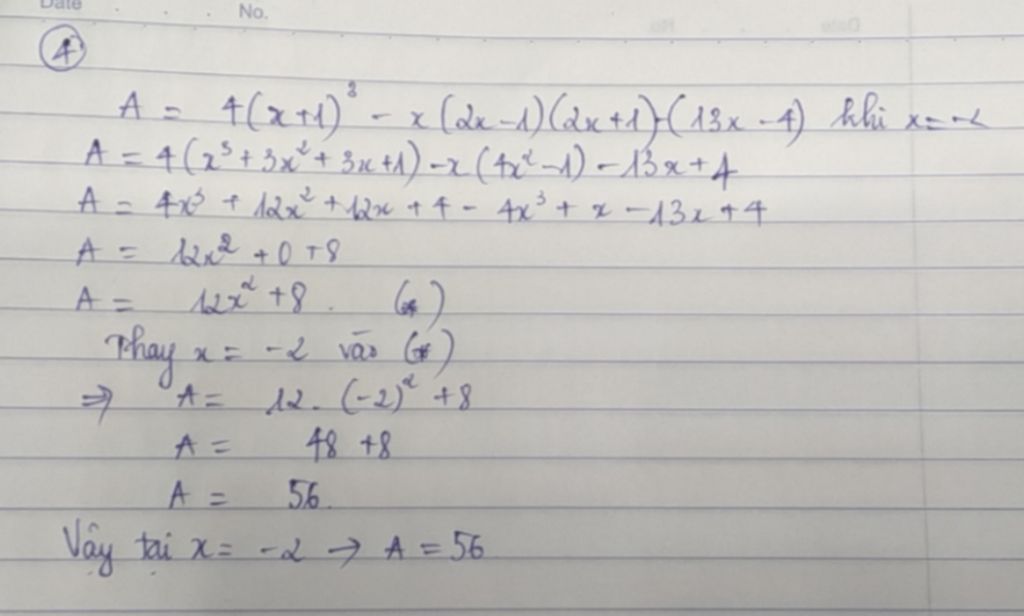 Date No.
④
A = 4(x+1)³ - x(2x-1)(2x+1)-(13x-4) khi x=-2
A = 4(x³+3x²+3x+1)-x(4x²-1)-13x+4
A = 4x³ + 12x² +12x + 4 - 4x³ + x -13x +4
A = 12x² +0 +8
A = 12x² +8. (*)
Thay x = -2 vào (*)
⇒ A = 12. (-2)² +8
A = 48 +8
A = 56.
Vậy tại x = -2 → A = 56